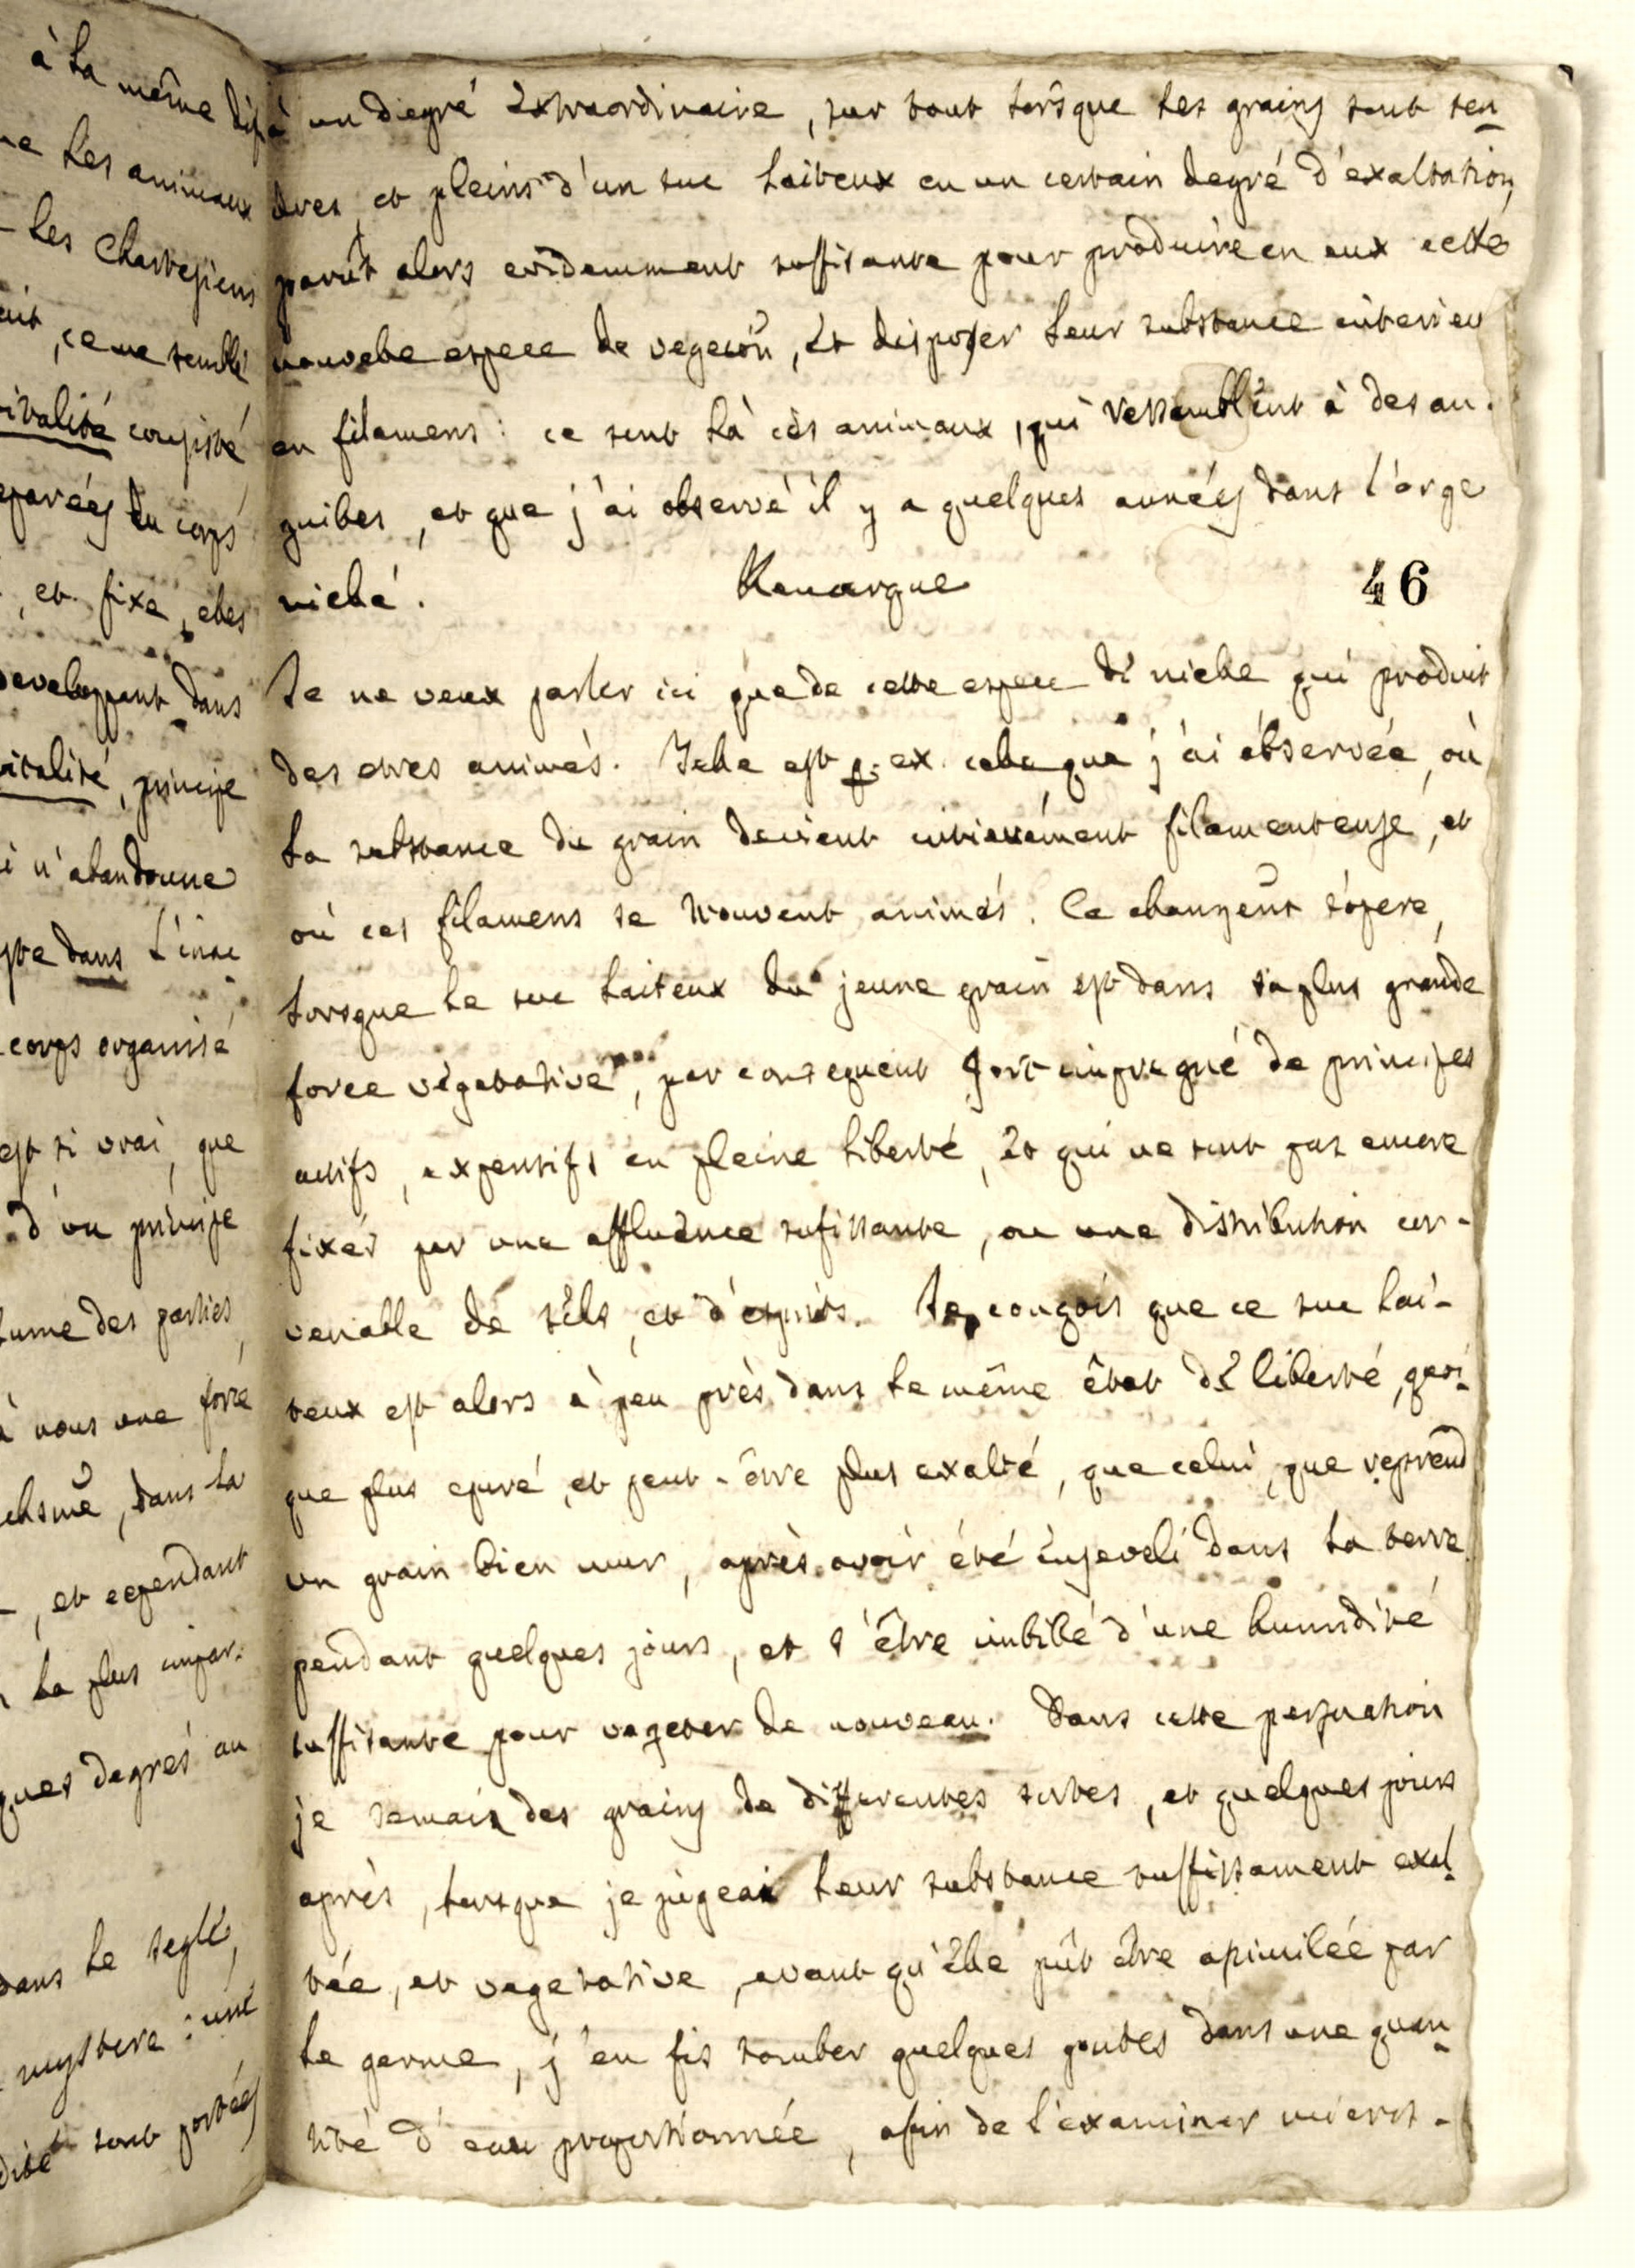 à la même
les animaux
les Chartejiens
, ce me semble
vitalité conjisté
du corps
, et fixe, elles
developpent dans
vitalité, principe
n'abandonne
dans l'inac
corps organisé
est si vrai, que
d'un principe
des parties,
à nous une force
, dans la
, et cependant
la plus impar-
ques degrés au
dans le seglé,
mystere : une
sont portées
à un degré extraordinaire, sur tout lorsque les grains sont ten
dres, et pleins d'un suc laiteux en un certain degré d'exaltation,
parût alors evidemment suffisante pour produire en eux cette
nouvelle espece de vegeton, et disposer leur substance interieu
en filamens : ce sont là ces animaux, qui ressemblent à des an-
guilles, et que j'ai observé il y a quelques années dans l'orge
niellé.
Remarque
46
Je ne veux parler ici que de cette espece de nielle qui produit
des etres animés. Telle est p. ex. celle que j'ai observée, où
la substance du grain devient entierement filamenteuse, et
où ces filamens se trouvent animés. Ce changent s'opere,
lorsque le suc laiteux du jeune grain est dans sa plus grande
force végetative, par consequent fort impregné de principes
actifs, expensifs en pleine liberté, et qui ne sont pas encore
fixés par une affluence sufissante, ou une distribution con-
venable de sels, et d'esprits. Je conçois que ce suc lai-
teux est alors à peu près dans le même êtat de liberté, quoi-
que plus epuré, et peut-être plus exalté, que celui, que reprend
un grain bien mur, après avoir été ensevelí dans la terre
pendant quelques jours, et s'être imbibé d'une humidité
suffisante pour vegeter de nouveau. Dans cette persuation
je semais des grains de differentes sortes, et quelques jours
après, lorsque je jugeai leur substance suffissament exal-
tée, et vegetative, avant qu'elle pût être assimilée par
le germe, j'en fis tomber quelques goutes dans une quan
tité d'eau proportionnée, afin de l'examiner micros-